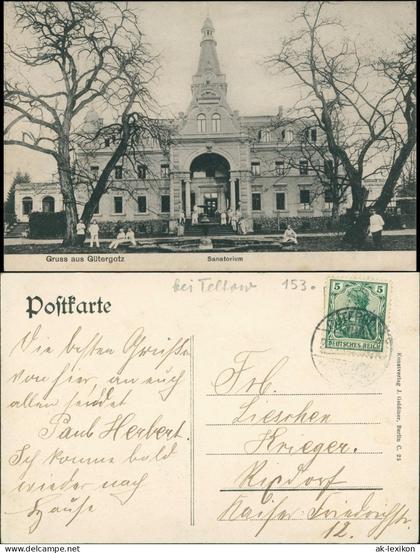 Gruss aus Gütergotz
Sanatorium
bei Teltow 153.
Postkarte
5 5
DEUTSCHES REICH
Die besten Grüsse
von hier, an euch
allen sendet
Paul Herbert.
Ich komme bald
wieder nach
Hause
Frl.
Lieschen
Krieger.
Rixdorf
Kaiser Friedrichstr.
12.
Kunstverlag J. Goldiner, Berlin C. 25
© ak-lexikon